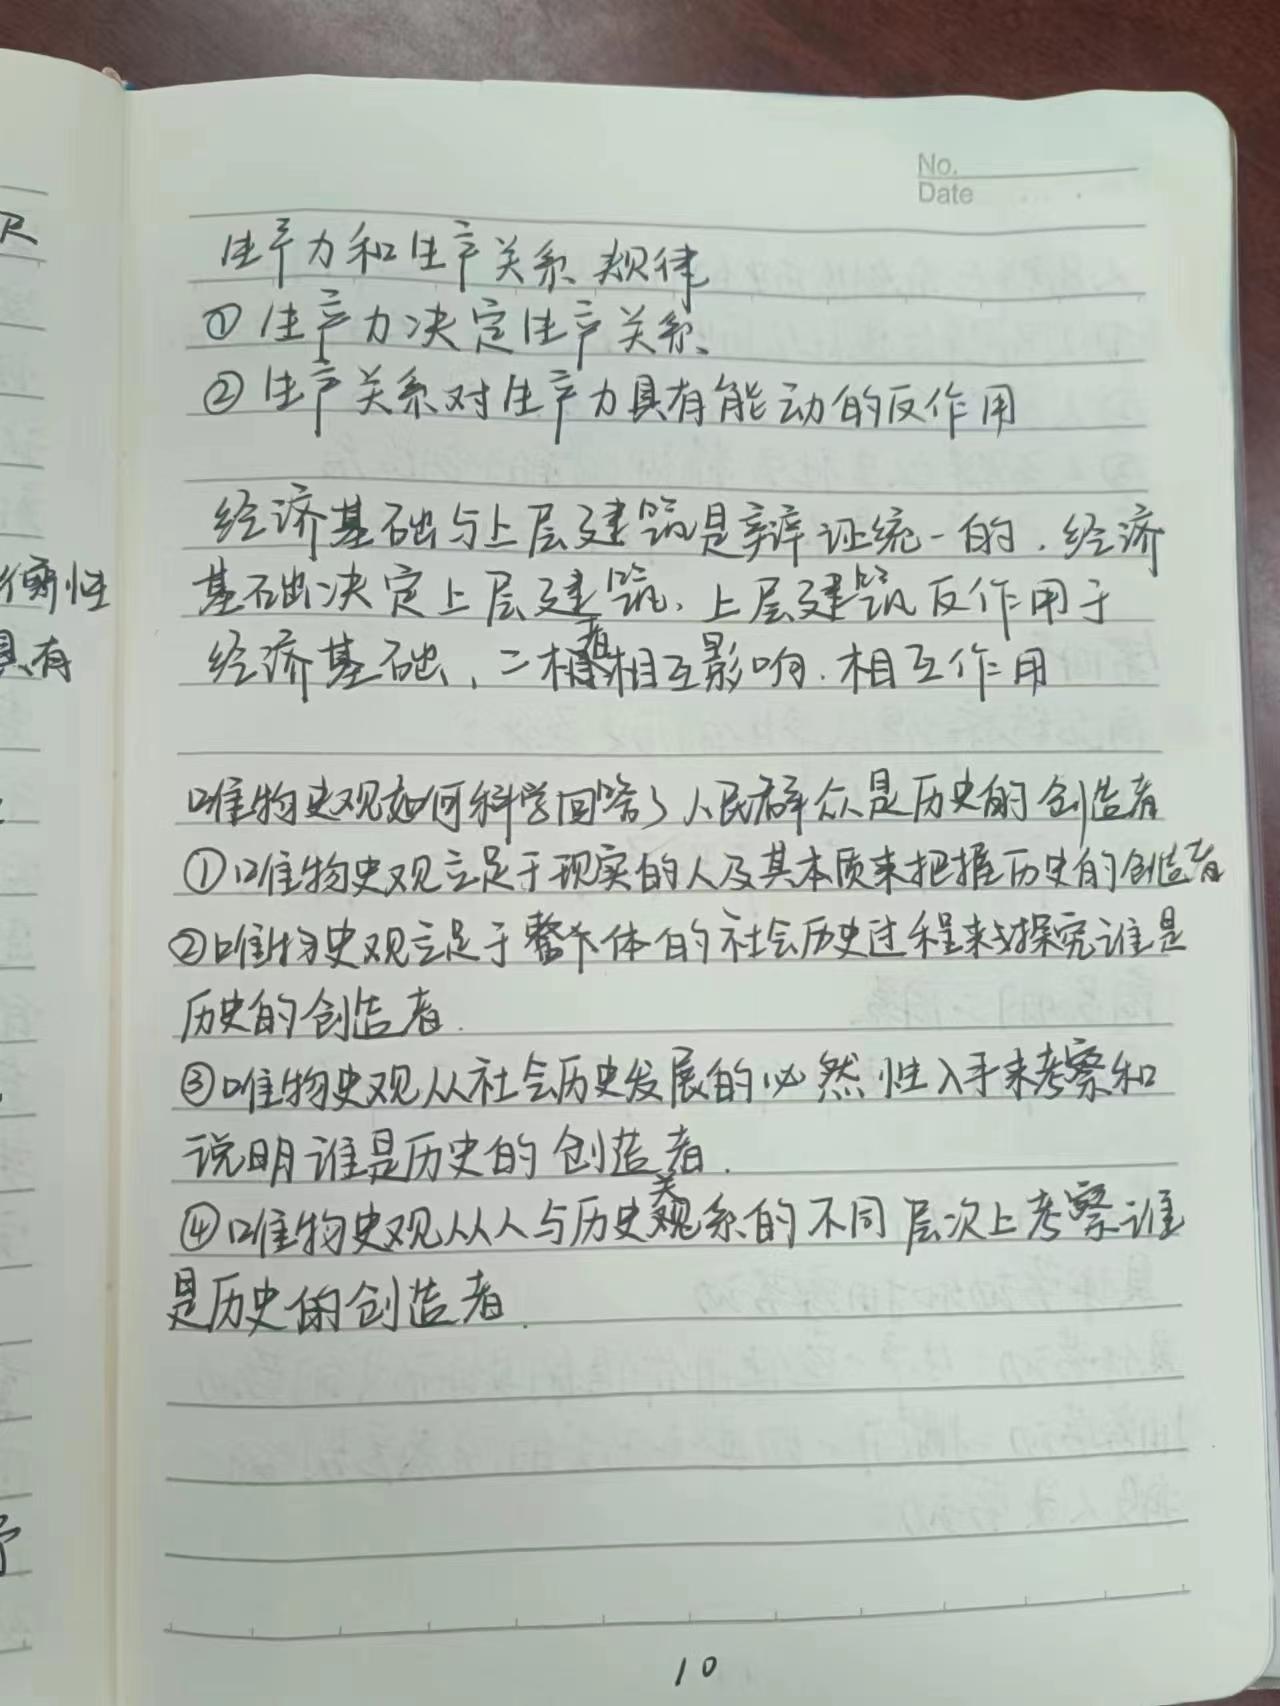 No.
Date
生产力和生产关系规律
①生产力决定生产关系
②生产关系对生产力具有能动的反作用
经济基础与上层建筑是辩证统一的.经济
基础决定上层建筑、上层建筑反作用于
经济基础、二者相互影响.相互作用
唯物史观如何科学回答了人民群众是历史的创造者
①唯物史观立足于现实的人及其本质来把握历史的创造者
②唯物史观立足于整体的社会历史过程来探究谁是
历史的创造者.
③唯物史观从社会历史发展的必然性入手来考察和
说明谁是历史的创造者.
④唯物史观从人与历史关系的不同层次上考察谁
是历史的创造者.
10
衡性
具有